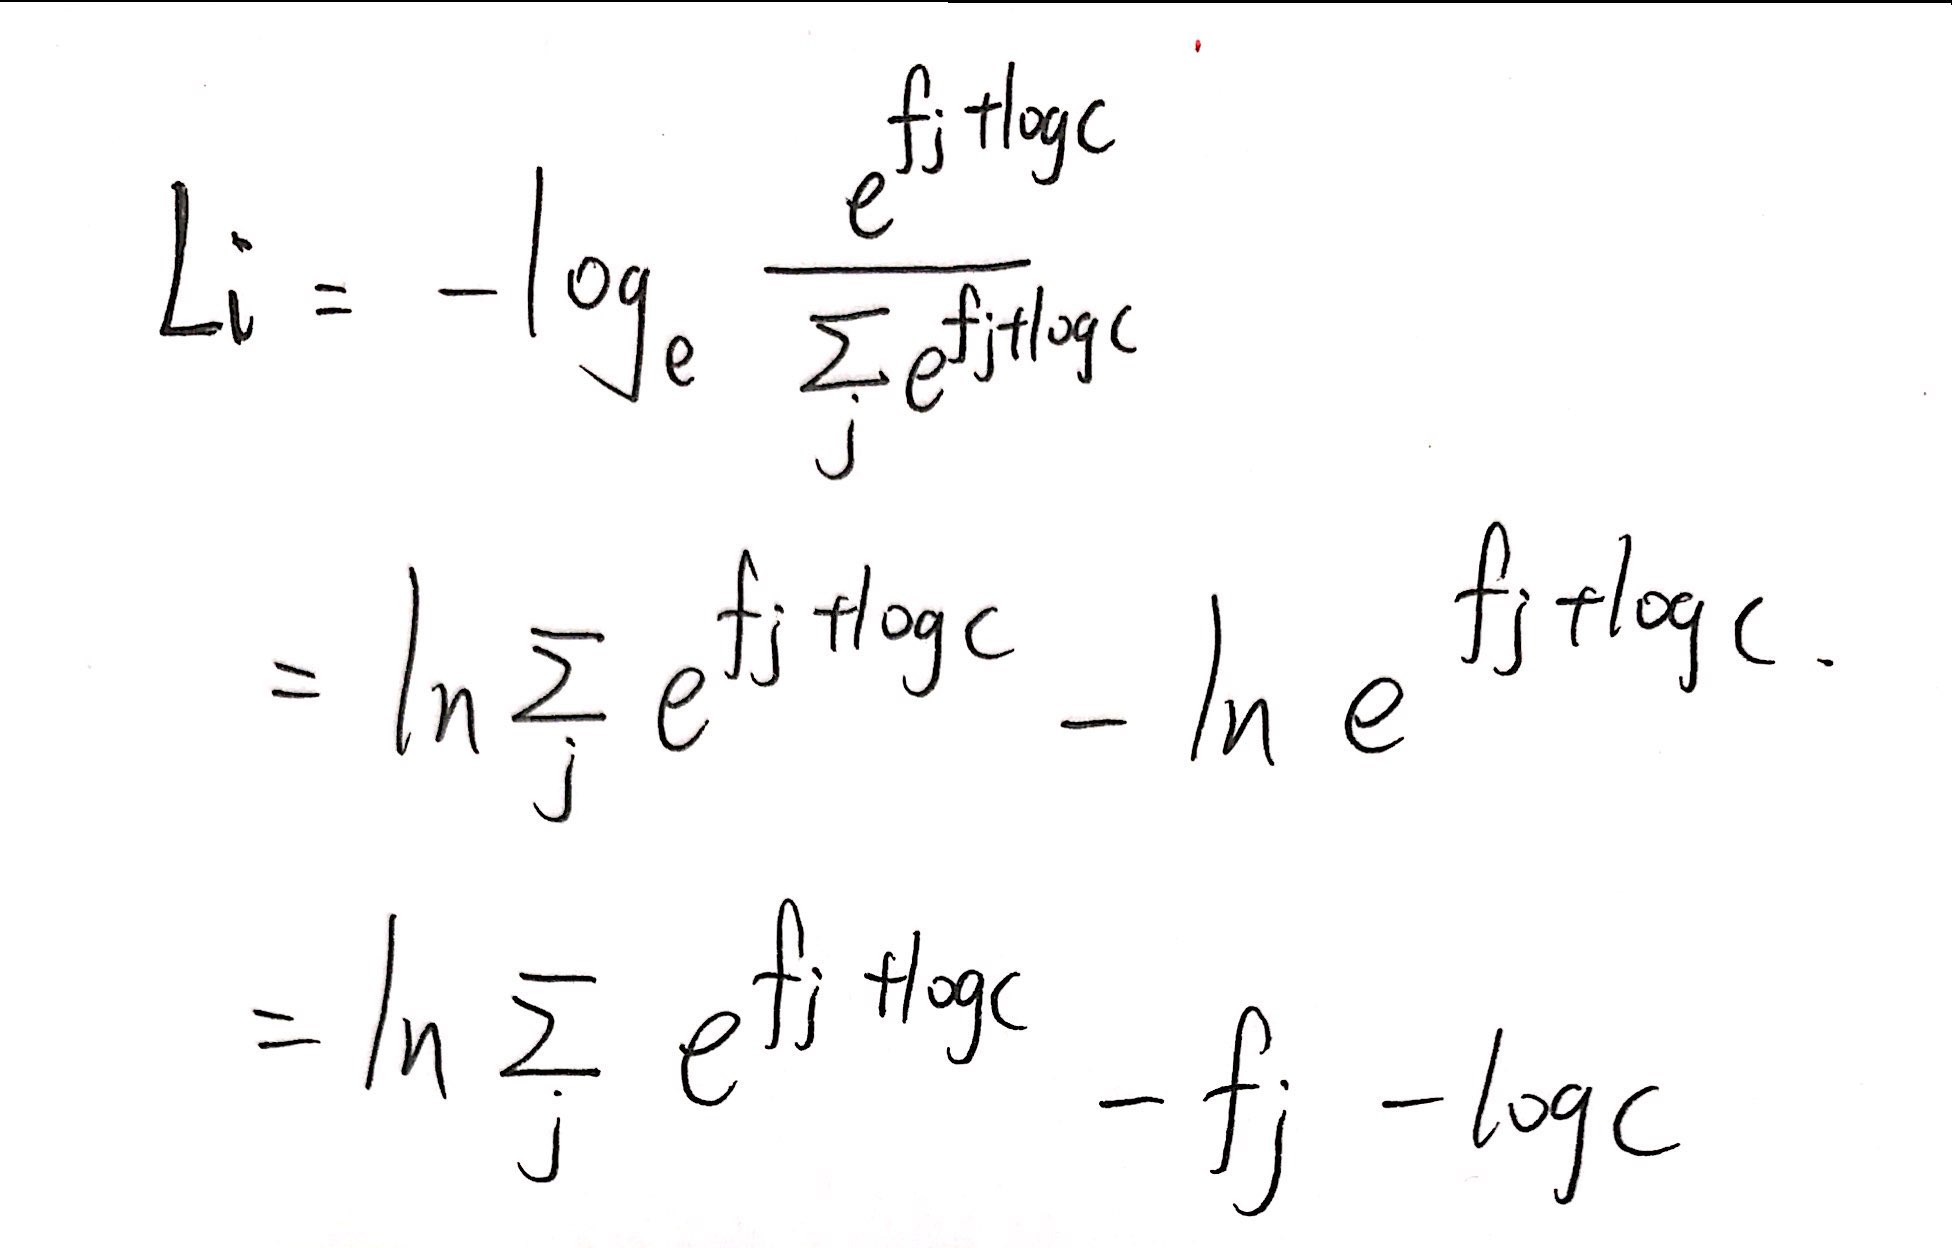 Li = -log_e \frac{e^{f_j + log c}}{\sum_j e^{f_j + log c}}
= ln \sum_j e^{f_j + log c} - ln e^{f_j + log c}.
= ln \sum_j e^{f_j + log c} - f_j - log c